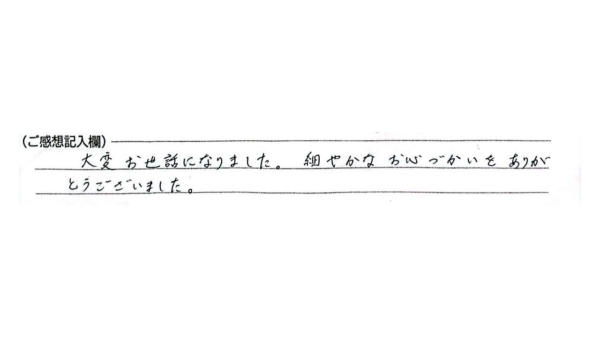 (ご感想記入欄)
大変お世話になりました。細やかなお心づかいをありが
とうございました。